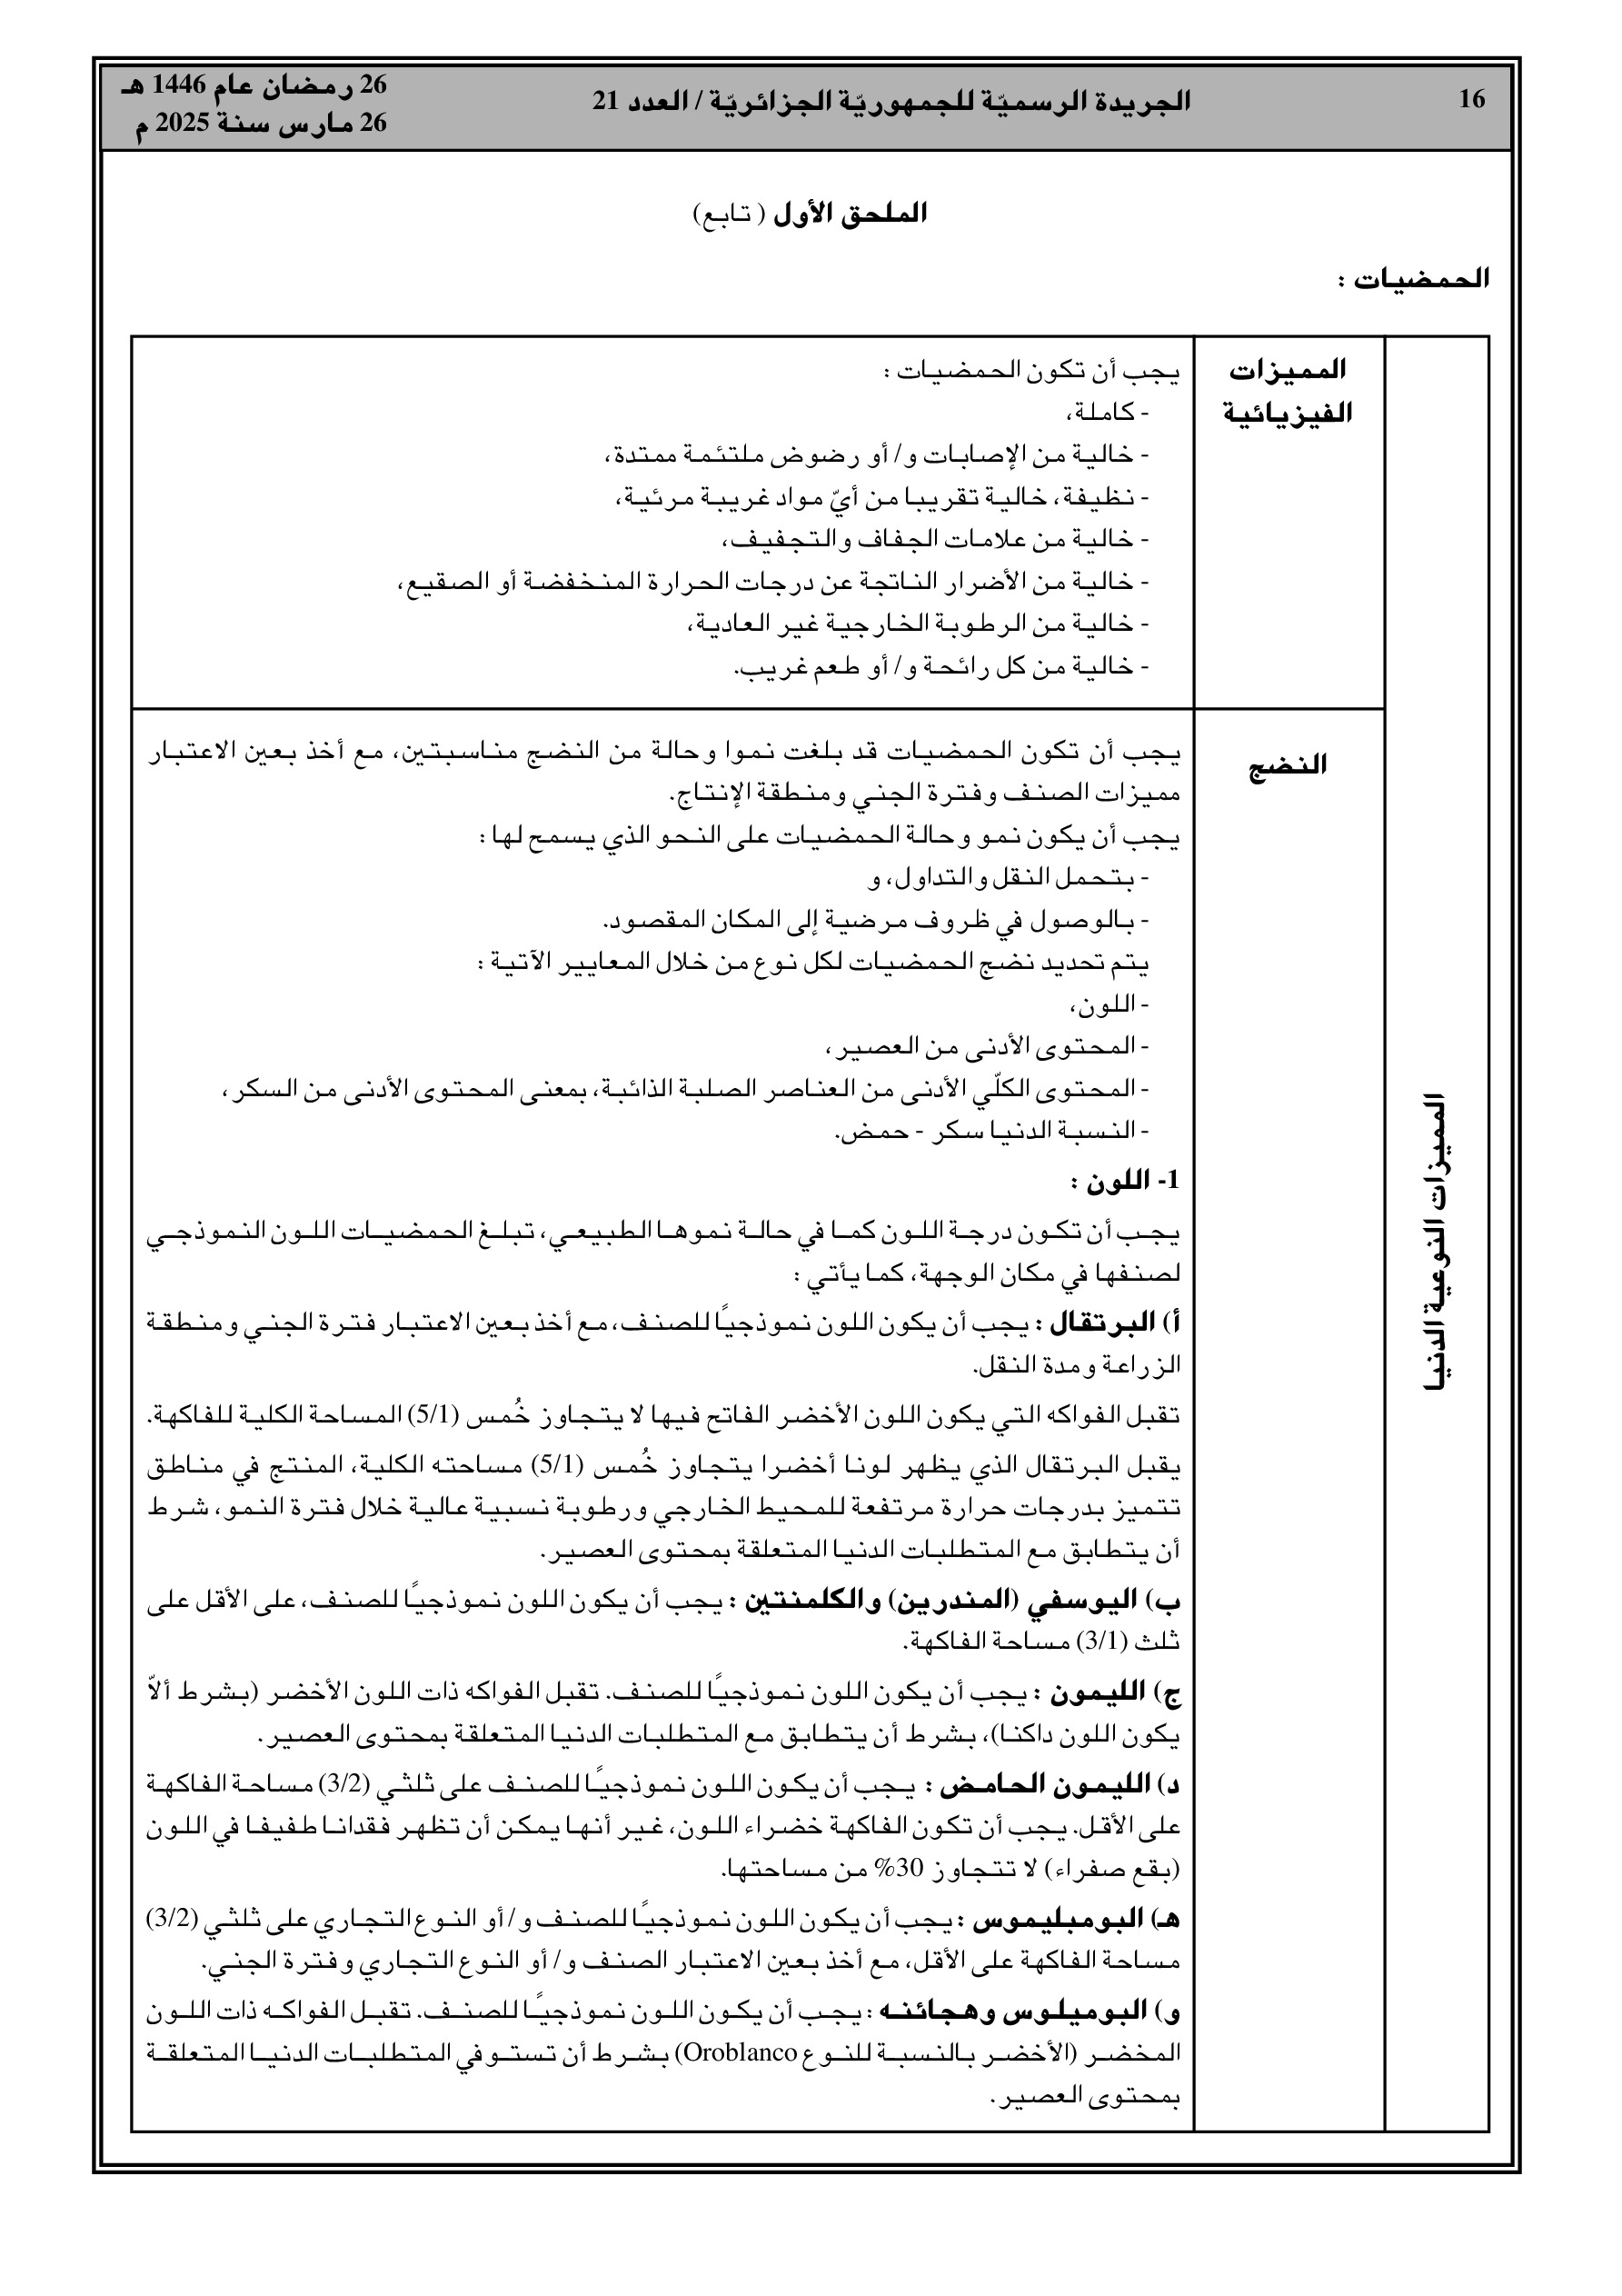 16
الجريدة الرسميّة للجمهوريّة الجزائريّة / العدد 21
26 رمضان عام 1446 هـ
26 مارس سنة 2025 م
الملحق الأول (تابع)
الحمضيات :
المميزات النوعية الدنيا
المميزات
الفيزيائية
يجب أن تكون الحمضيات :
- كاملة،
- خالية من الإصابات و/ أو رضوض ملتئمة ممتدة،
- نظيفة، خالية تقريبا من أيّ مواد غريبة مرئية،
- خالية من علامات الجفاف والتجفيف،
- خالية من الأضرار الناتجة عن درجات الحرارة المنخفضة أو الصقيع،
- خالية من الرطوبة الخارجية غير العادية،
- خالية من كل رائحة و/ أو طعم غريب.
النضج
يجب أن تكون الحمضيات قد بلغت نموا وحالة من النضج مناسبتين، مع أخذ بعين الاعتبار
مميزات الصنف وفترة الجني ومنطقة الإنتاج.
يجب أن يكون نمو وحالة الحمضيات على النحو الذي يسمح لها :
- بتحمل النقل والتداول، و
- بالوصول في ظروف مرضية إلى المكان المقصود.
يتم تحديد نضج الحمضيات لكل نوع من خلال المعايير الآتية :
- اللون،
- المحتوى الأدنى من العصير،
- المحتوى الكلّي الأدنى من العناصر الصلبة الذائبة، بمعنى المحتوى الأدنى من السكر،
- النسبة الدنيا سكر - حمض.
1- اللون :
يجب أن تكون درجة اللون كما في حالة نموها الطبيعي، تبلغ الحمضيات اللون النموذجي
لصنفها في مكان الوجهة، كما يأتي :
أ) البرتقال : يجب أن يكون اللون نموذجيًا للصنف، مع أخذ بعين الاعتبار فترة الجني ومنطقة
الزراعة ومدة النقل.
تقبل الفواكه التي يكون اللون الأخضر الفاتح فيها لا يتجاوز خُمس (5/1) المساحة الكلية للفاكهة.
يقبل البرتقال الذي يظهر لونا أخضرا يتجاوز خُمس (5/1) مساحته الكلية، المنتج في مناطق
تتميز بدرجات حرارة مرتفعة للمحيط الخارجي ورطوبة نسبية عالية خلال فترة النمو، شرط
أن يتطابق مع المتطلبات الدنيا المتعلقة بمحتوى العصير.
ب) اليوسفي (المندرين) والكلمنتين : يجب أن يكون اللون نموذجيًا للصنف، على الأقل على
ثلث (3/1) مساحة الفاكهة.
ج) الليمون : يجب أن يكون اللون نموذجيًا للصنف. تقبل الفواكه ذات اللون الأخضر (بشرط ألاّ
يكون اللون داكنا)، بشرط أن يتطابق مع المتطلبات الدنيا المتعلقة بمحتوى العصير.
د) الليمون الحامض : يجب أن يكون اللون نموذجيًا للصنف على ثلثي (3/2) مساحة الفاكهة
على الأقل. يجب أن تكون الفاكهة خضراء اللون، غير أنها يمكن أن تظهر فقدانا طفيفا في اللون
(بقع صفراء) لا تتجاوز 30% من مساحتها.
هـ) البومبليموس : يجب أن يكون اللون نموذجيًا للصنف و/ أو النوع التجاري على ثلثي (3/2)
مساحة الفاكهة على الأقل، مع أخذ بعين الاعتبار الصنف و/ أو النوع التجاري وفترة الجني.
و) البوميلوس وهجائنه : يجب أن يكون اللون نموذجيًا للصنف. تقبل الفواكه ذات اللون
المخضر (الأخضر بالنسبة للنوع Oroblanco) بشرط أن تستوفي المتطلبات الدنيا المتعلقة
بمحتوى العصير.